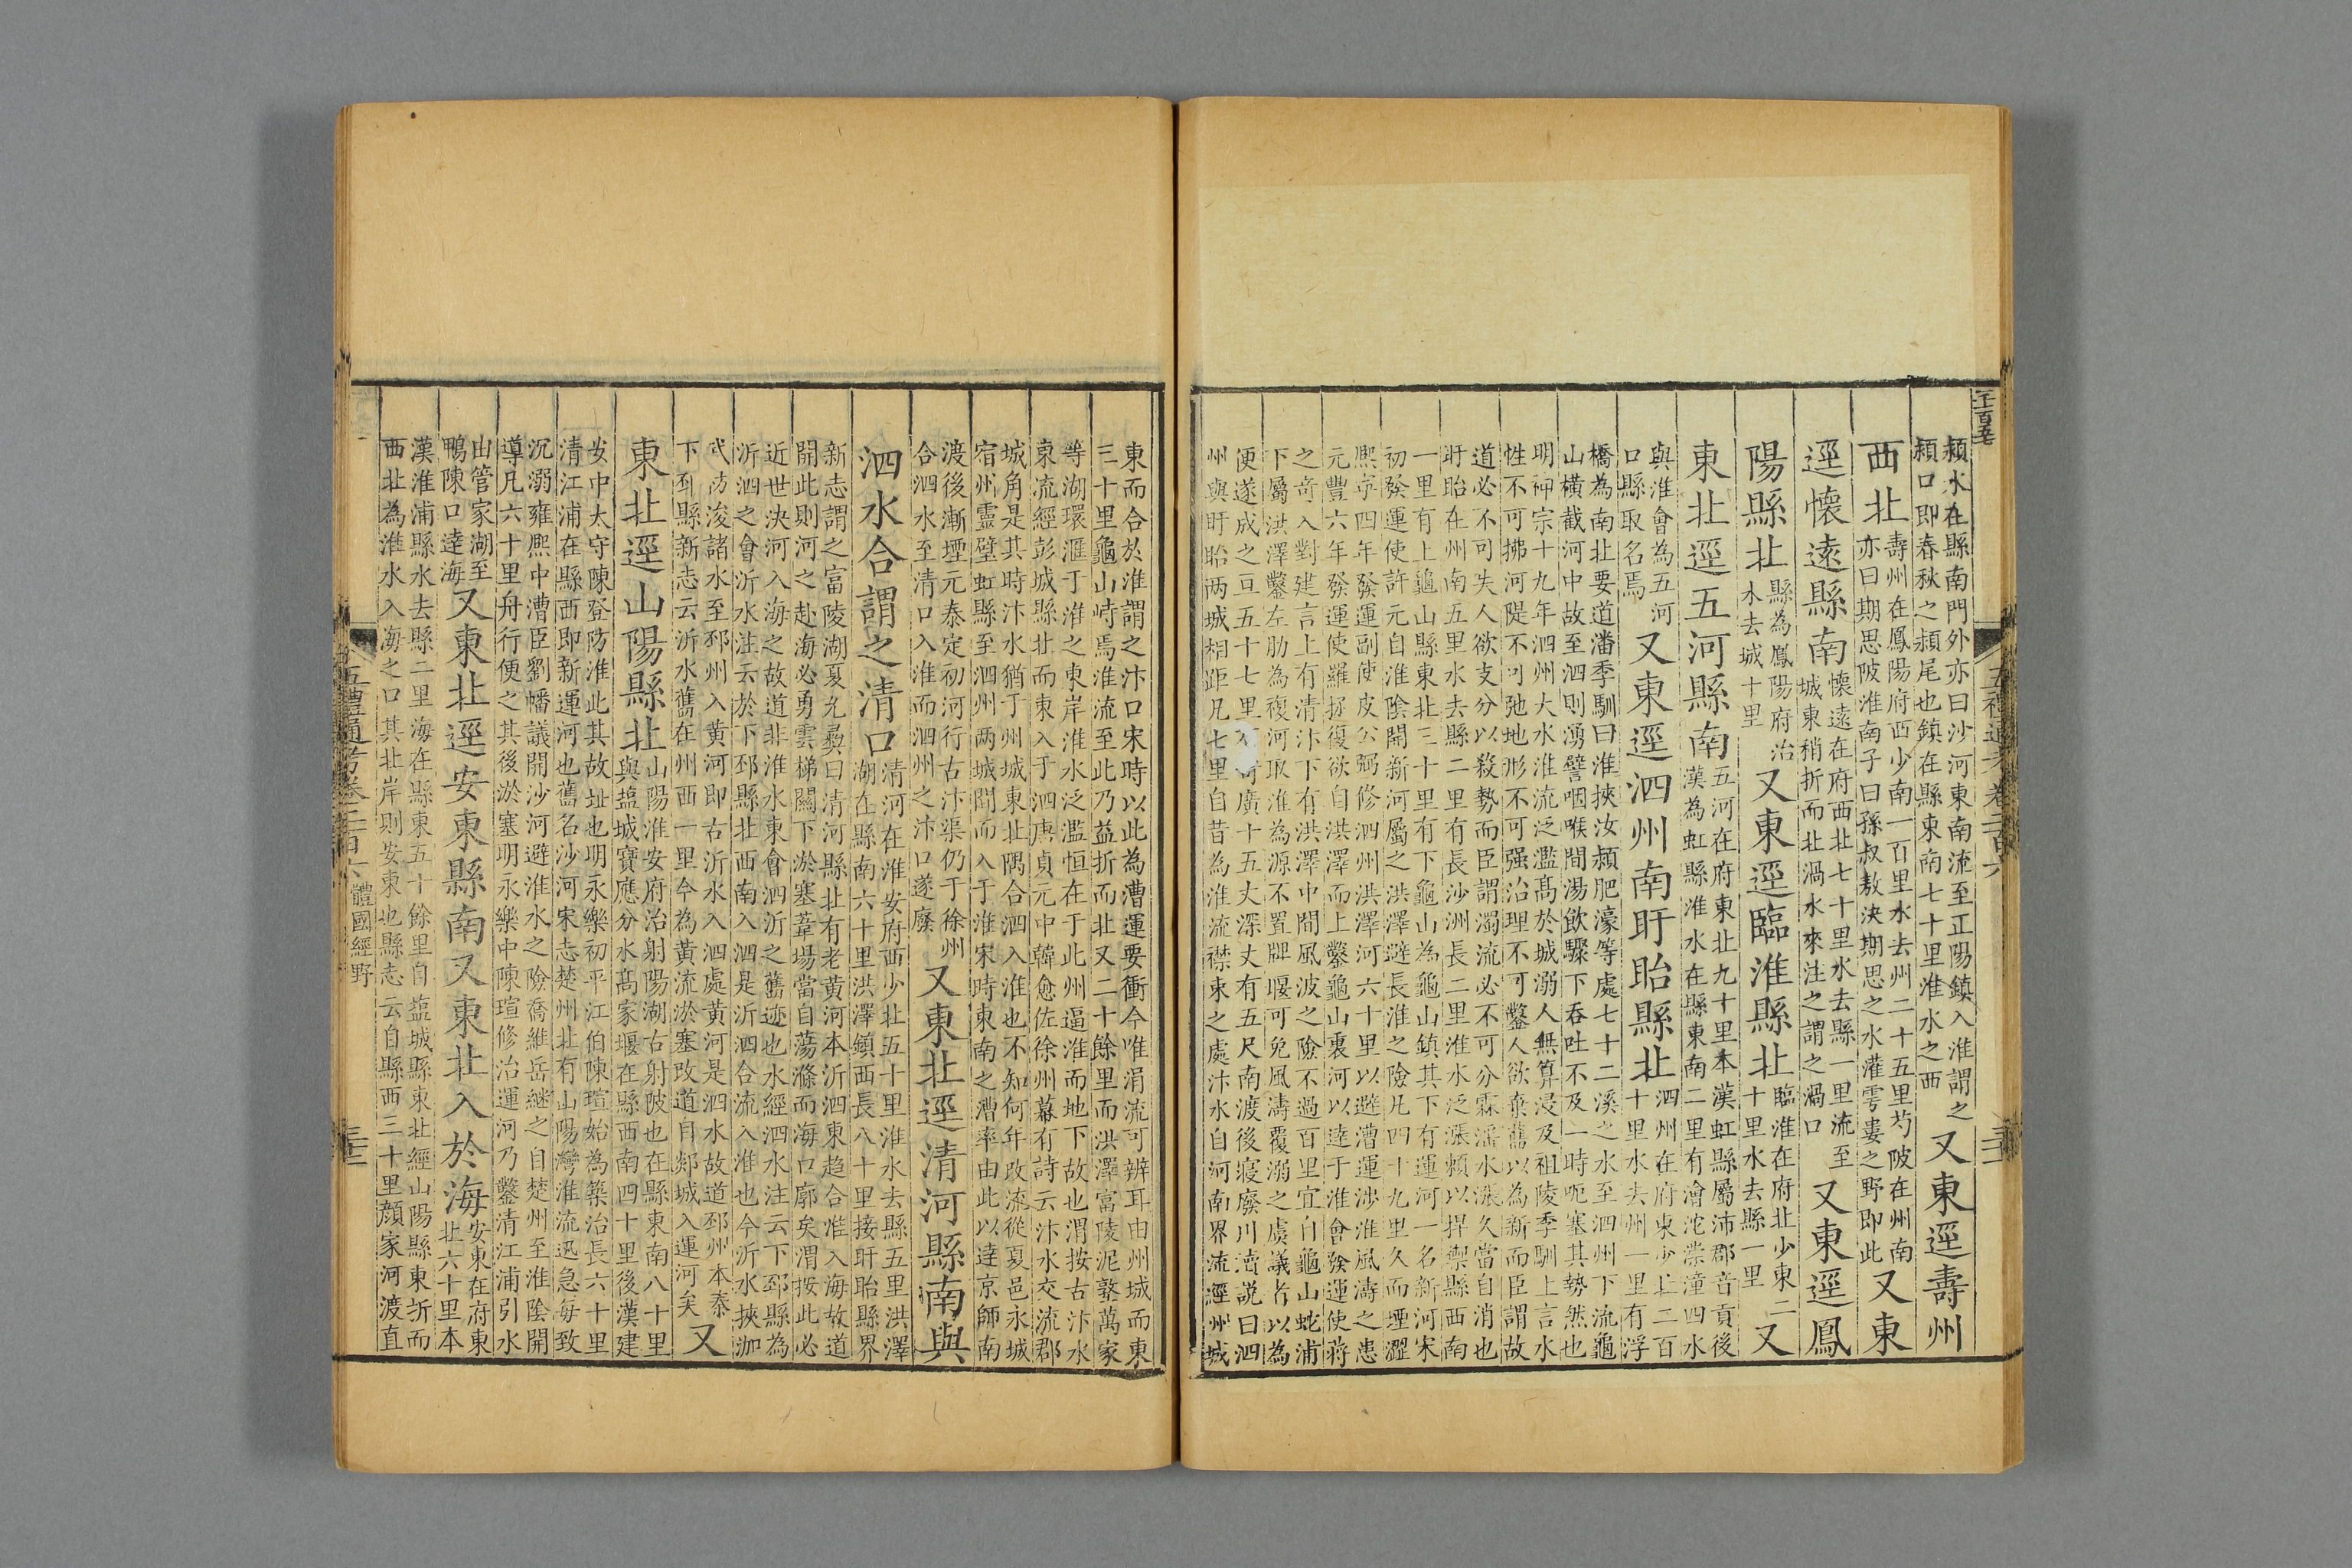 潁水在縣南門外亦曰沙河東南流至正陽鎮入淮謂之
潁口即春秋之潁尾也鎮在縣東南七十里淮水之西
又東逕壽州
西北
壽州在鳳陽府西少南一百里水去州二十五里芍陂在州南
亦曰期思陂淮南子曰孫叔敖決期思之水灌雩婁之野即此
又東
逕懷遠縣南
懷遠在府西北七十里水去縣一里流至
城東稍折而北渦水來注之謂之渦口
又東逕鳳
陽縣北
縣為鳳陽府治
水去城十里
又東逕臨淮縣北
臨淮在府北少東二
十里水去縣一里
又
東北逕五河縣南
五河在府東北九十里本漢虹縣屬沛郡音貢後
漢為虹縣淮水在縣東南二里有澮沱漴潼四水
與淮會為五河
口縣取名焉
又東逕泗州南盱眙縣北
泗州在府東少北二百
十里水去州一里有浮
橋為南北要道潘季馴曰淮挾汝潁肥濠等處七十二溪之水至泗州下流龜
山橫截河中故至泗則湧譬咽喉間湯飲驟下吞吐不及一時呃塞其勢然也
明神宗十九年泗州大水淮流泛濫高於城溺人無算浸及祖陵季馴上言水
性不可拂河隄不可弛地形不可强治理不可鑿人欲棄舊以為新而臣謂故
道必不可失人欲支分以殺勢而臣謂濁流必不可分霖潘水漲久當自消也
盱眙在州南五里水去縣二里有長沙洲長二里淮水泛漲賴以捍禦縣西南
一里有上龜山縣東北三十里有下龜山為龜山鎮其下有運河一名新河宋
初發運使許元自淮陰開新河屬之洪澤避長淮之險凡四十九里久而堙澀
熙寧四年發運副使皮公弼修泗州洪澤河六十里以避漕運涉淮風濤之患
元豐六年發運使羅拯復欲自洪澤而上鑿龜山裏河以達于淮會發運使蔣
之奇入對建言上有清汴下有洪澤中間風波之險不過百里宜自龜山蛇浦
下屬洪澤鑿左肋為複河取淮為源不置牌堰可免風濤覆溺之虞議者以為
便遂成之亘五十七里廣十五丈深丈有五尺南渡後寖廢川瀆說曰泗
州與盱眙两城相距凡七里自昔為淮流襟束之處汴水自河南界流經州城
東而合於淮謂之汴口宋時以此為漕運要衝今唯涓流可辨耳由州城而東
三十里龜山峙焉淮流至此乃益折而北又二十餘里而洪澤富陵泥墩萬家
等湖環滙于淮之東岸淮水泛濫恒在于此州逼淮而地下故也渭按古汴水
東流經彭城縣北而東入于泗唐貞元中韓愈佐徐州幕有詩云汴水交流郡
城角是其時汴水猶于州城東北隅合泗入淮也不知何年改流從夏邑永城
宿州靈壁虹縣至泗州两城間而入于淮宋時東南之漕率由此以達京師南
渡後漸堙元泰定初河行古汴渠仍于徐州
合泗水至清口入淮而泗州之汴口遂廢
又東北逕清河縣南與
泗水合謂之清口
清河在淮安府西少北五十里淮水去縣五里洪澤
湖在縣南六十里洪澤鎮西長八十里接盱眙縣界
新志謂之富陵湖夏允彛曰清河縣北有老黄河本沂泗東趋合淮入海故道
開此則河之赴海必勇雲梯關下淤塞葦場當自蕩滌而海口廓矣渭按此必
近世決河入海之故道非淮水東會泗沂之舊迹也水經泗水注云下邳縣為
沂泗之會沂水注云於下邳縣北西南入泗是沂泗合流入淮也今沂水挾泇
武沂浚諸水至邳州入黄河即古沂水入泗處黄河是泗水故道邳州本泰
下邳縣新志云沂水舊在州西一里今為黄流淤塞改道自郯城入運河矣
又
東北逕山陽縣北
山陽淮安府治射陽湖古射陂也在縣東南八十里
與鹽城寶應分水高家堰在縣西南四十里後漢建
安中太守陳登防淮此其故址也明永樂初平江伯陳瑄始為築治長六十里
清江浦在縣西即新運河也舊名沙河宋志楚州北有山陽灣淮流迅急每致
沉溺雍熙中漕臣劉蟠議開沙河避淮水之險喬維岳繼之自楚州至淮陰開
導凡六十里舟行便之其後淤塞明永樂中陳瑄修治運河乃鑿清江浦引水
由管家湖至
鴨陳口達海
又東北逕安東縣南又東北入於海
安東在府東
北六十里本
漢淮浦縣水去縣二里海在縣東五十餘里自鹽城縣東北經山陽縣東折而
西北為淮水入海之口其北岸則安東也縣志云自縣西三十里顔家河渡直
五禮通考卷二百六 體國經野